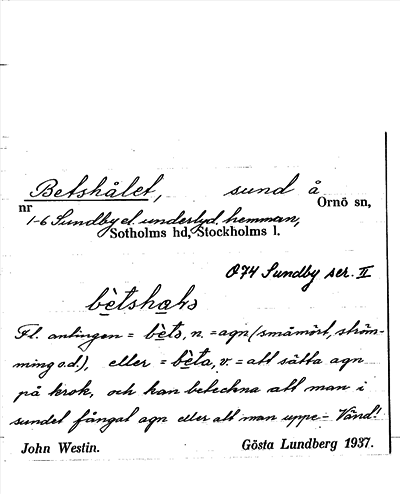 Betshålet, sund å
nr Ornö sn,
1-6 Sundby el. underlyd. hemman,
Sotholms hd, Stockholms l.
Ö74 Sundby ser. II
Fl. antingen = bets, n. = agn (småmört, ström-
ming o.d.), eller = beta, v. = att sätta agn
på krok, och kan beteckna att man i
sundet fångat agn eller att man uppe- Vänd!
John Westin. Gösta Lundberg 1937.